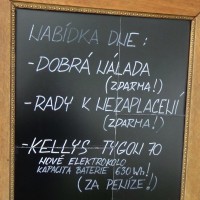 NABÍDKA DNE:
- DOBRÁ NÁLADA
(ZDARMA!)
- RADY K NEZAPLACENÍ
(ZDARMA!)
- KELLYS TYGON 70
NOVÉ ELEKTROKOLO
KAPACITA BATERIE 630Wh!
(ZA PENÍZE!)